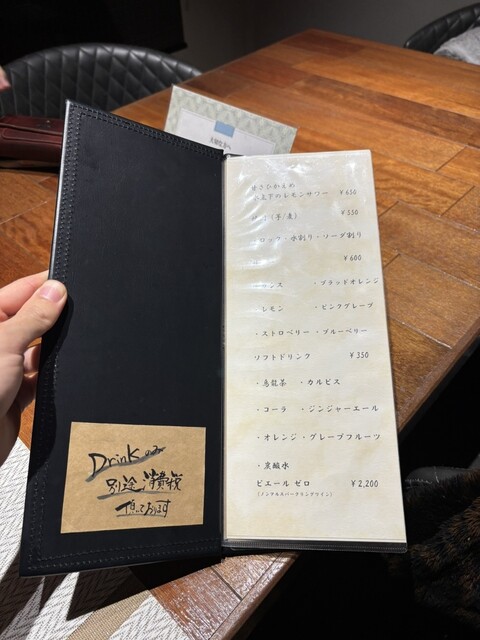 Drinkのみ
別途消費税
頂いております
甘さひかえめ
のレモンサワー ¥650
(芋/麦) ¥550
ロック・水割り・ソーダ割り
¥600
・ブラッドオレンジ
レモン ・ピンクグレープ
・ストロベリー ・ブルーベリー
ソフトドリンク ¥350
・烏龍茶 ・カルピス
・コーラ ・ジンジャーエール
・オレンジ・グレープフルーツ
・炭酸水
ピエール ゼロ ¥2,200
(ノンアルスパークリングワイン)